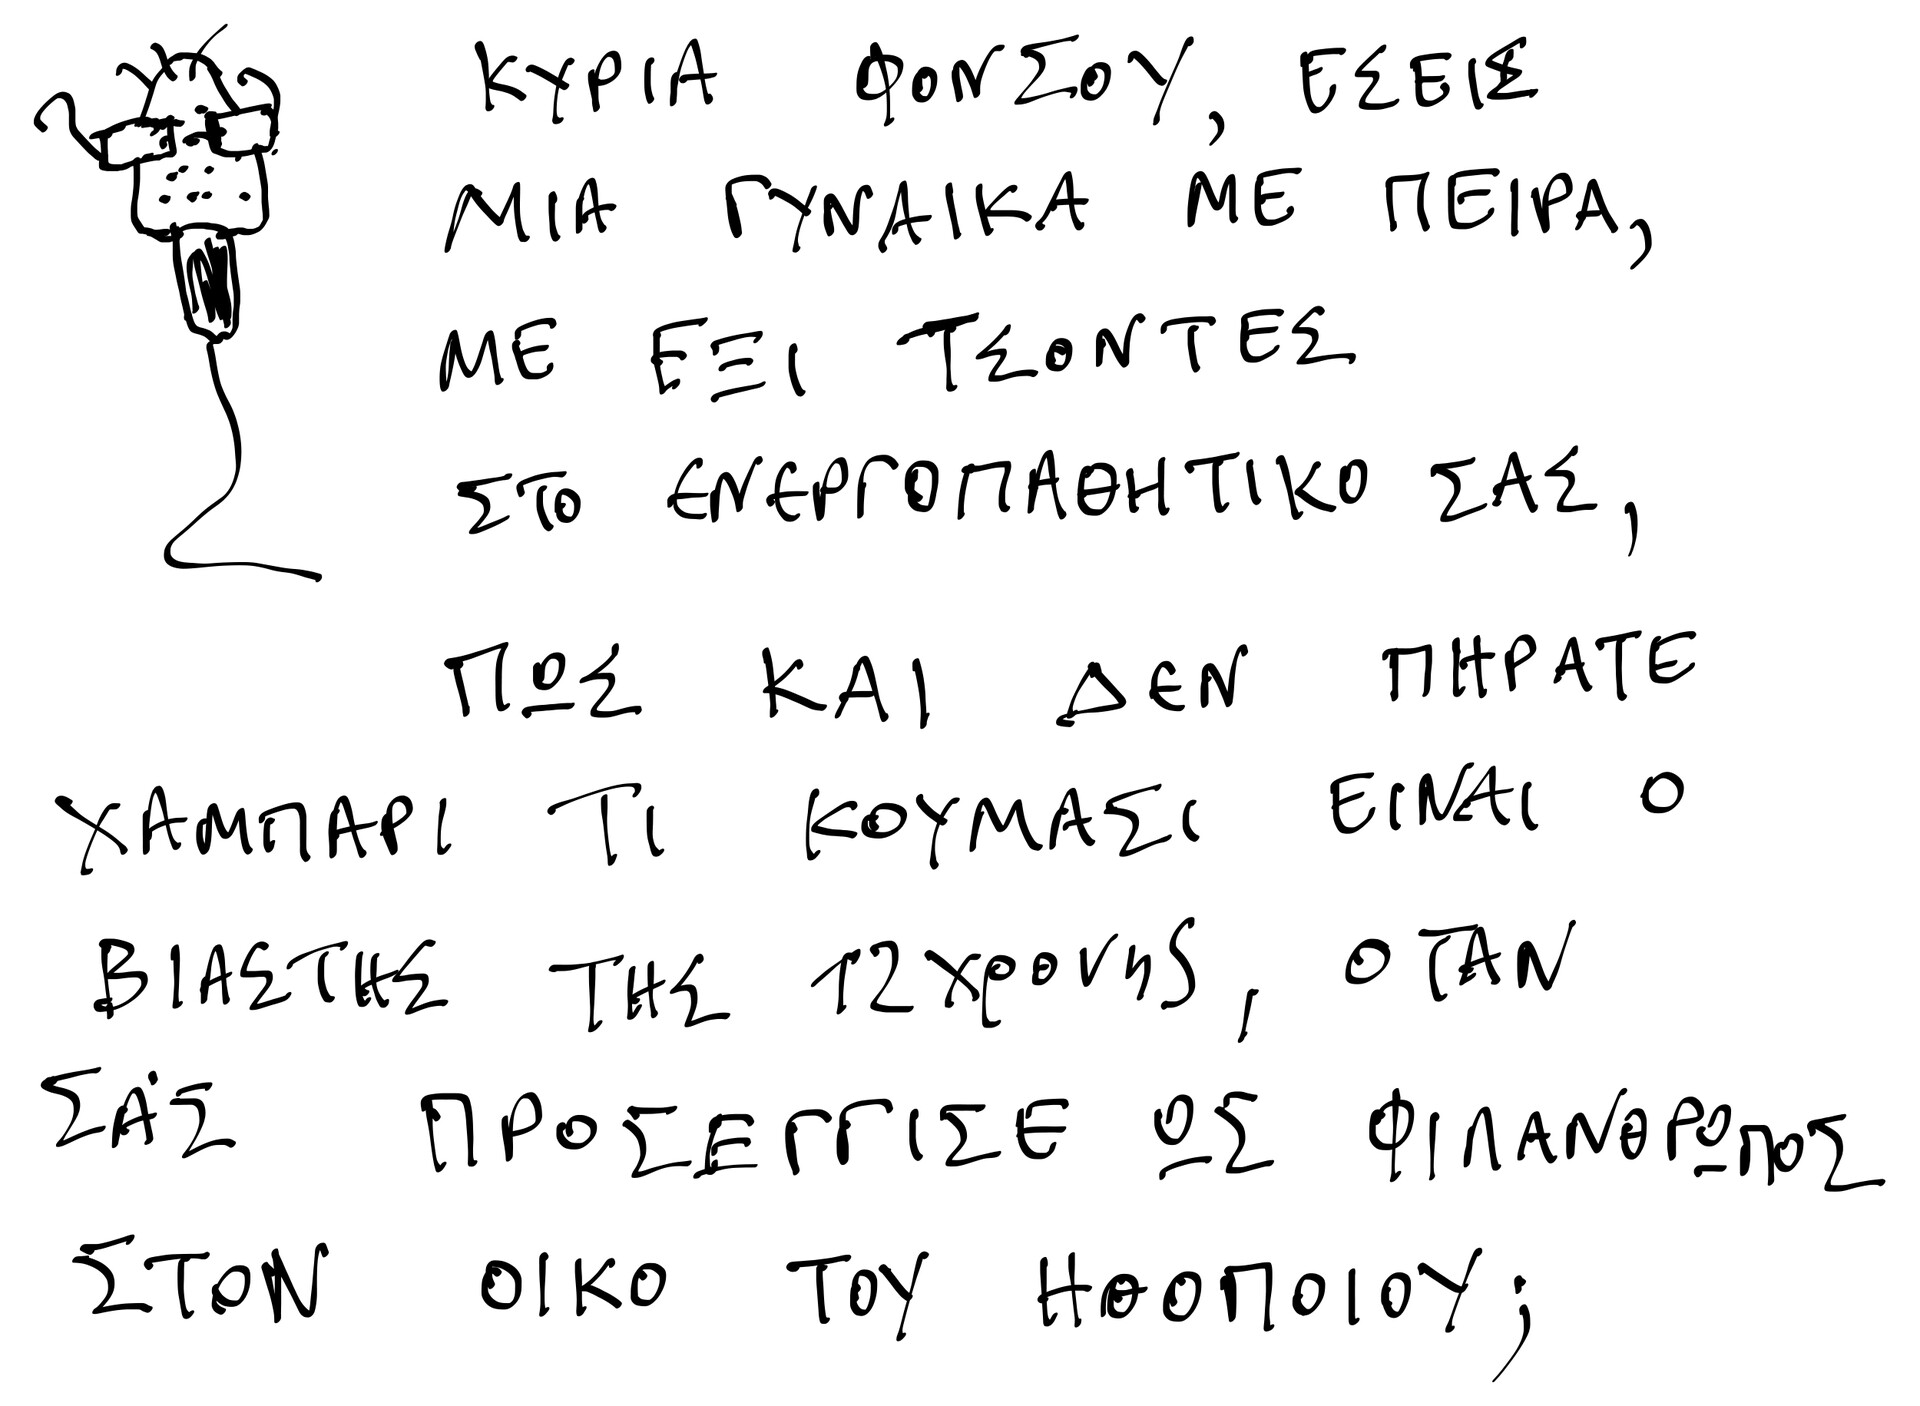 ΚΥΡΙΑ ΦΟΝΣΟΥ, ΕΣΕΙΣ
ΜΙΑ ΓΥΝΑΙΚΑ ΜΕ ΠΕΙΡΑ,
ΜΕ ΕΞΙ ΤΣΟΝΤΕΣ
ΣΤΟ ΕΝΕΡΓΟΠΑΘΗΤΙΚΟ ΣΑΣ,
ΠΩΣ ΚΑΙ ΔΕΝ ΠΗΡΑΤΕ
ΧΑΜΠΑΡΙ ΤΙ ΚΟΥΜΑΣΙ ΕΙΝΑΙ Ο
ΒΙΑΣΤΗΣ ΤΗΣ 12χρονης, ΟΤΑΝ
ΣΑΣ ΠΡΟΣΕΓΓΙΣΕ ΩΣ ΦΙΛΑΝΘΡΩΠΟΣ
ΣΤΟΝ ΟΙΚΟ ΤΟΥ ΗΘΟΠΟΙΟΥ;